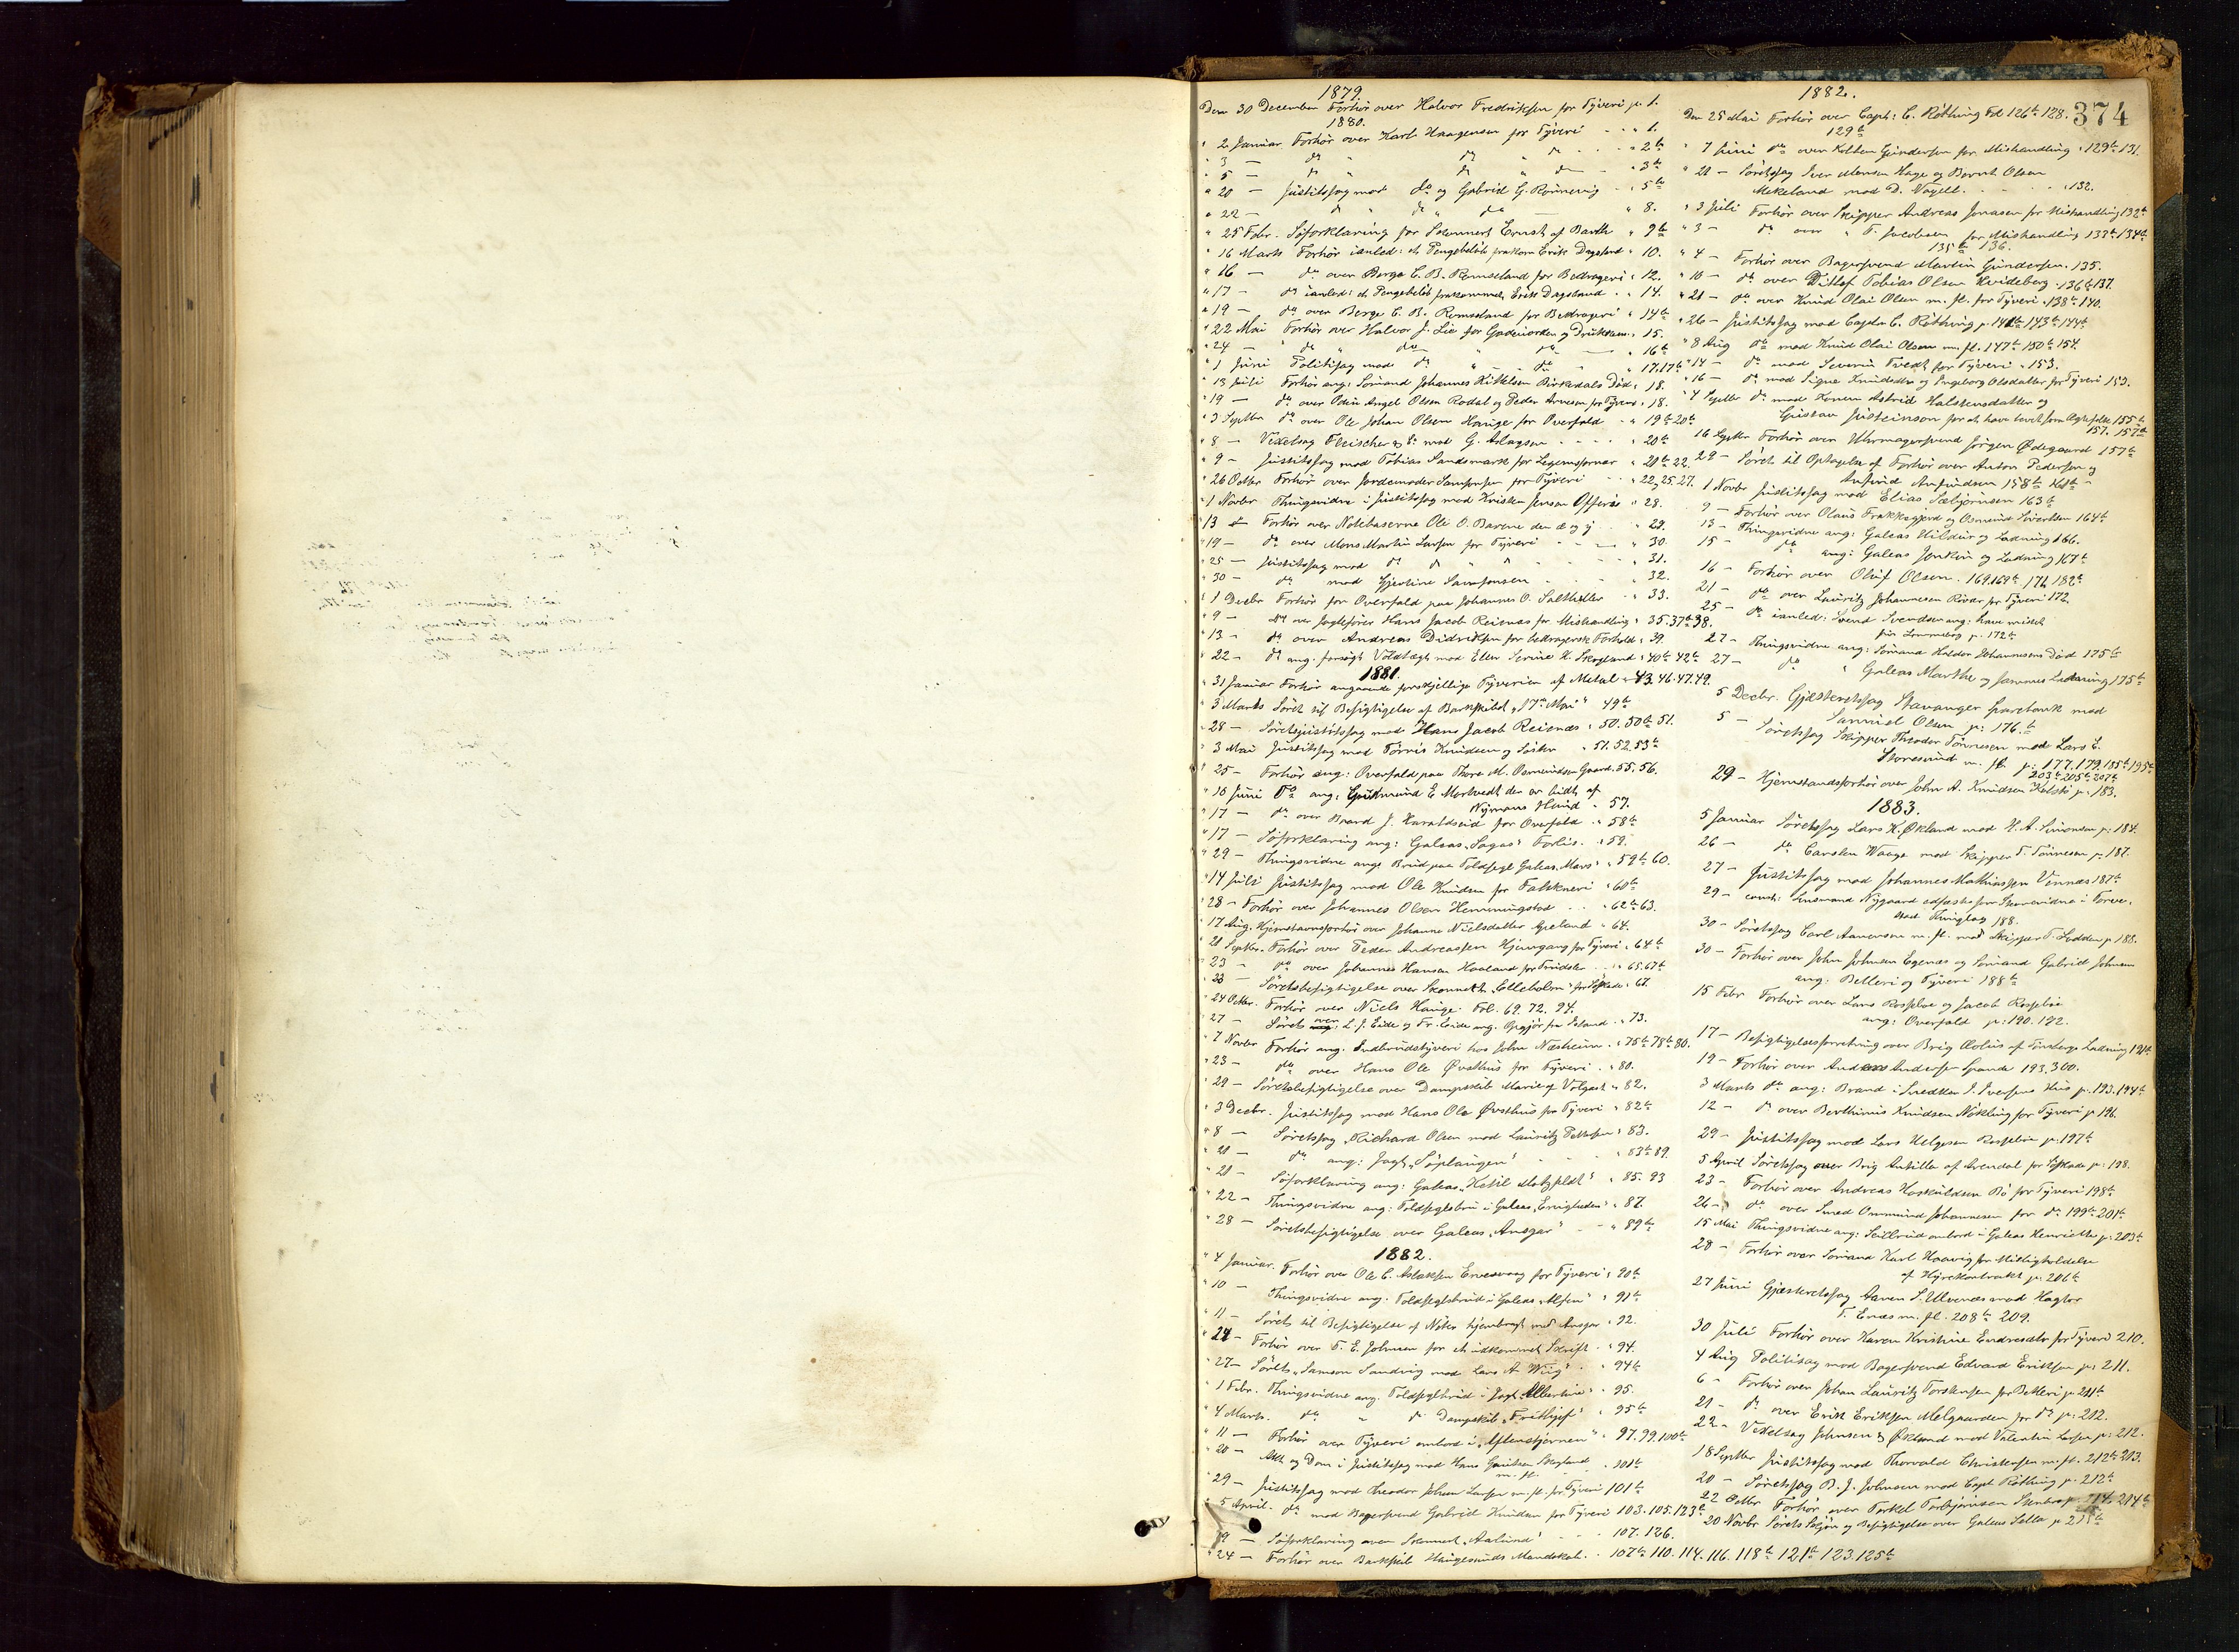 374
1879.
Den 30 December Forhör over Halvor Fredriksen for Tyveri p. 1.
1880.
" 2 Januar Forhör over Karl Haagensen for Tyveri - - " 1.
" 3 — do " do " do - - " 2b
" 5 — do " do " do — - " 3b
" 20 — Justitssag mod do og Gabriel G. Rönnevig - " 5b
" 22 — do " do " do — " 8.
" 25 Febr. Söforklaring for Skonnert Ernst af Barth " 9b
" 16 Marts Forhör ianled: et Pengebelöb frakom Erik Dagsland " 10.
" 16 — do over Berge C. B. Romseland for Bedrageri " 12.
" 17 — do ianled: et Pengebelöb frakommet Erik Dagsland - " 14.
" 19 — do over Berge C. B. Romsland for Bedrageri " 14b
" 22 Mai Forhör over Halvor J. Lie for Gadeuorden og Drukkensk. 15.
" 24 — " do " do — " do — " 16b
" 1 Juni Politisag mod do " — do - " 17.17b
" 13 Juli Forhör ang: Sömand Johannes Kittelsen Birkedals Död " 18.
" 19 — do over Odin Angel Olsen Rodal og Peder Arnesen for Tyveri " 18.
" 3 Septbr do over Ole Johan Olsen Hauge for Overfald - " 19b 20b
" 8 — Vexelsag Fleischer & Co mod G. Aslagsen - - - - " 20b
" 9 — Justitssag mod Tobias Sandsmark for Legemsfornær " 21b 22.
" 26 Octbr Forhör over Jordemoder Samsonsen for Tyveri - - " 22, 25. 27.
" 1 Novbr Thingsvidne i Justitssag mod Kristen Jensen " 28.
" 13 — Forhör over Notebaserne Ole O. Barene den æ og y - " 29.
" 19 — do over Mons Martin Larsen for Tyveri - — " 30.
" 25 — Justitssag mod do do " " " 31.
" 30 — do mod Gjertine Samsonsen - - - " 32.
" 1 Decbr Forhör for Overfald paa Johannes O. - " 33.
" 9 — do over Jagtefører Hans Jacob Reienæs for Mishandling " 35. 37b 38.
" 13 — do over Andreas Didriksen for bedragersk Forhold " 39.
" 22 — do ang: forsögt Voldtægt mod Ellen Serine K. Skogland " 40b 42b
1881.
" 31 Januar Forhör angaaende forskjellige Tyverier af Metal " 43. 46. 47. 49.
" 3 Marts Söret til Besigtigelse af Barkskibet "17de Mai" 49b
" 28 — Söretsjustitssag mod Hans Jacob Reienæs " 50. 50b 51.
" 3 Mai Justitssag mod Törris Knudsen og Söster " 51. 52. 53b
" 25 — Forhör ang: Overfald paa Thore M. Osmundsen Gaard. 55. 56.
" 10 Juni do ang: Gudmund E Mortvedt der er bidt af
Nymans Hund " 57.
" 17 — do over Baard J. Haraldseid for Overfald " 58b
" 17 — Söforklaring ang: Galeas "Sagas" Forlis. " 59.
" 29 — Thingsvidne ang: Brud paa Toldsegl Galeas "Mars" " 59b 60.
" 14 Juli Justitssag mod Ole Knudsen for Falskneri " 60b
" 28 — Forhör over Johannes Olsen Hemmingstad - - " 62b 63.
" 17 Aug. Hjemstavnsforhör over Johanne Nielsdatter " 64.
" 21 Septbr. Forhör over Peder Andreassen Hjungang for Tyveri " 64b
" 23 — do over Johannes Hansen Haaland for Trudsler - " 65. 67b
" 23 — Söretsbesigtigelse over Skonnert "Elleholm" for Söskade " 67.
" 24 Octbr. Forhör over Niels Hauge. Fol. 69. 72. 94.
" 27 — Söret over L. J. Eide og Fr. Eide ang. Opgjör fra Island " 73.
" 7 Novbr Forhör ang: Indbrudstyveri hos John Næsheim " 75b 78b 80.
" 23 — do over Hans Ole Övsthus for Tyveri " 80.
" 29 — Söretsbesigtigelse over Dampskib Marie af Volgast " 82.
" 3 Decbr. Justitssag mod Hans Ole Øvsthus for Tyveri " 82b
" 8 — Söretssag "Richard Olsen mod Lauritz Pettersen " 83.
" 21 — do ang: Jagt "Söplaugen" - " 83b 89.
" 21 — Söforklaring ang: Galeas "Ketil Motzfeldt" " 85. 93
" 22 — Thingsvidne ang: Toldseglsbrud i Galeas "Enigheden" " 87.
" 28 — Söretsbesigtigelse over Galeas "Ansgar" - " 89b
1882.
" 4 Januar. Forhör over Ole C. Aslaksen Ervesvaag for Tyveri " 90b
" 10 — Thingsvidne ang: Toldseglsbrud i Galeas "Alfen" " 91b
" 11 — Söret til Besigtigelse af Nöter hjembragt med Ansgar " 92.
" 24 — Forhör over T. E. Johnsen for et udkommet Skrift " 94.
" 27 — Sörets "Samson Sandvig mod Lars A. Wiig" " 94b
" 1 Febr. Thingsvidne ang. Toldseglbrud i Jagt "Albertine" " 95.
" 4 Marts. do " do Dampskib "Frithjof" " 95b
" 11 — Forhör over Tyveri ombord i "Aftenstjernen" " 97. 99. 100b
" 20 — Akt og Dom i Justitssag mod Hans Skogland
m. fl. " 101b
" 29 — Justitssag mod Theodor Johan Larsen m. fl. for Tyveri 101b
" 5 April. do mod Bagersvend Gabriel Knudsen for Tyveri 103. 105. 123b
" 19 — Söforklaring over Skonnert "Aalund" - - 107. 126.
" 24 — Forhör over Barkskib Haugesunds Mandskab. - 107b 110. 114. 116. 118b 121b 123. 125b
1882.
Den 25 Mai Forhör over Capt: C. Röthing Fol 126b 128.
129b
" 7 Juni do over Kolben Gundersen for Mishandling " 129b 131.
" 21 — Söretssag Iver Monsen Hage og Bernt Olsen
Mekeland mod D. Vagell. - - " 132.
" 3 Juli Forhör over Skipper Andreas Jonasen for Mishandling 132b
" 3 — do over " T. Jacobsen for Mishandling 133b 134b
135b 136.
" 4 — Forhör over Bagersvend Martin Gundersen. 135.
" 10 — do over Ditlef Tobias Olsen Kvideberg " 136b 137.
" 21 — do over Knud Olai Olsen m. fl. for Tyveri " 138b 140.
" 26 — Justitssag mod Capt. C. Röthing p. 141b 143b 144b
" 8 Aug do mod Knud Olai Olsen m. fl. 147b 150b 154.
" 14 — do mod Severin Tvedt for Tyveri " 153.
" 16 — do mod Signe Knudsdtr og Ingeborg Olsdatter for Tyveri 153.
" 4 Septbr do mod Konen Astrid Halstensdatter og
Gustav Justeinson for at have levet som Ægtefolk 155b
157. 157b
16 Septbr Forhör over Uhrmagersvend Jörgen Ødegaard 157b
29 — Söret til Optagelse af Forhör over Anton Pedersen og
Amund Amundsen 158b 161b
1 Novbr Justitssag mod Elias Sæbjörnsen 163b
9 — Forhör over Olaus Frakkagjerd og Osmund Sivertsen 164b
13 — Thingsvidne ang: Galeas Hildur og Ladning 166.
15 — do ang: Galeas Jenkin og Ladning 167b
16 — Forhör over Oluf Olsen. 169. 169b 171. 182b
21 — do over Lauritz Johannesen Rövær for Tyveri 172.
25 — do ianled: Svend Svendsen ang: have mistet
sin Lommebog p. 172b
27 — Thingsvidne ang: Sömand Haldor Johannesens Död 175b
27 — do " Galeas Marthe og sammes Ladning 175b
5 Decbr. Gjæsteretssag Stavanger Sparebank mod
Samuel Olsen p: 176.b
5 — Söretssag Skipper Theodor Tönnesen mod Lars E.
Storesund m. fl. p: 177. 179. 185b 195b
203b 205b 207b
29 — Hjemstandsforhör over John A. Knudsen Kolstö p: 183.
1883.
5 Januar Söretssag Lars K. Økland mod H. A. Simonsen p: 184.
26 — do Carsten Waage mod Skipper T. Tönnesen p. 187.
27 — Justitssag mod Johannes Mathiassen Vinnæs 187b
29 — const: Lensmand Nygaard edfæstes for Skurevidne i Torve-
stad Thinglag 188.
30 — Söretssag Carl Aanensen m. fl. mod Skipper T. Lodden p 188.
30 — Forhör over John Johnsen Egenæs og Sömand Gabriel Johnsen
ang: Betleri og Tyveri 188b
15 Febr Forhör over Lars Rossebø og Jacob Rossebø
ang: Overfald p: 190. 192.
17 — Besigtigelsesforretning over Brig Æolus af Tönsbergs Ladning 191b
19 — Forhör over Andreas Anderson Spande 193. 300.
3 Marts do ang: Brand i Snedker S. Iversens Hus p. 193. 194b
12 — do over Berthinius Knudsen Nökling for Tyveri p 196.
29 — Justitssag mod Lars Helgesen Rossebø p: 197b
5 April Söretssag over Brig Antilla af Arendal for Söskade p: 198.
23 — Forhör over Andreas Hoskuldsen Bö for Tyveri 198b
26 — do over Smed Ommund Johannesen for do 199b 201b
15 Mai Thingsvidne ang: Seilbrud ombord i Galeas Henriette p: 203b
28 — Forhör over Sömand Karl Haavig for Misligholdelse
af Hyrekontrakt p: 206b
27 Juni Gjæsteretssag Aanen S. Ulvenæs mod Hagtor
T. Enæs m. fl. 208b 209.
30 Juli Forhör over Karen Kristine Endresdtr for Tyveri 210.
4 Aug Politisag mod Bagersvend Edvard Eriksen p: 211.
6 — Forhör over Johan Lauritz Torstensen for Betleri p: 211b
21 — do over Erik Eriksen Melgaarden for do p: 212.
22 — Vexelsag Johnsen & Økland mod Valentin Larsen p: 212.
18 Septbr Justitssag mod Thorvald Christensen m. fl. 212b 213.
20 — Söretssag B. J. Johnsen mod Capt Röthing p: 212b
22 Octbr Forhör over Torkel Torbjörnsen Stenbru p. 214. 214b
20 Novbr Sörets Skjön og Besigtigelse over Galeas Sella p 215b